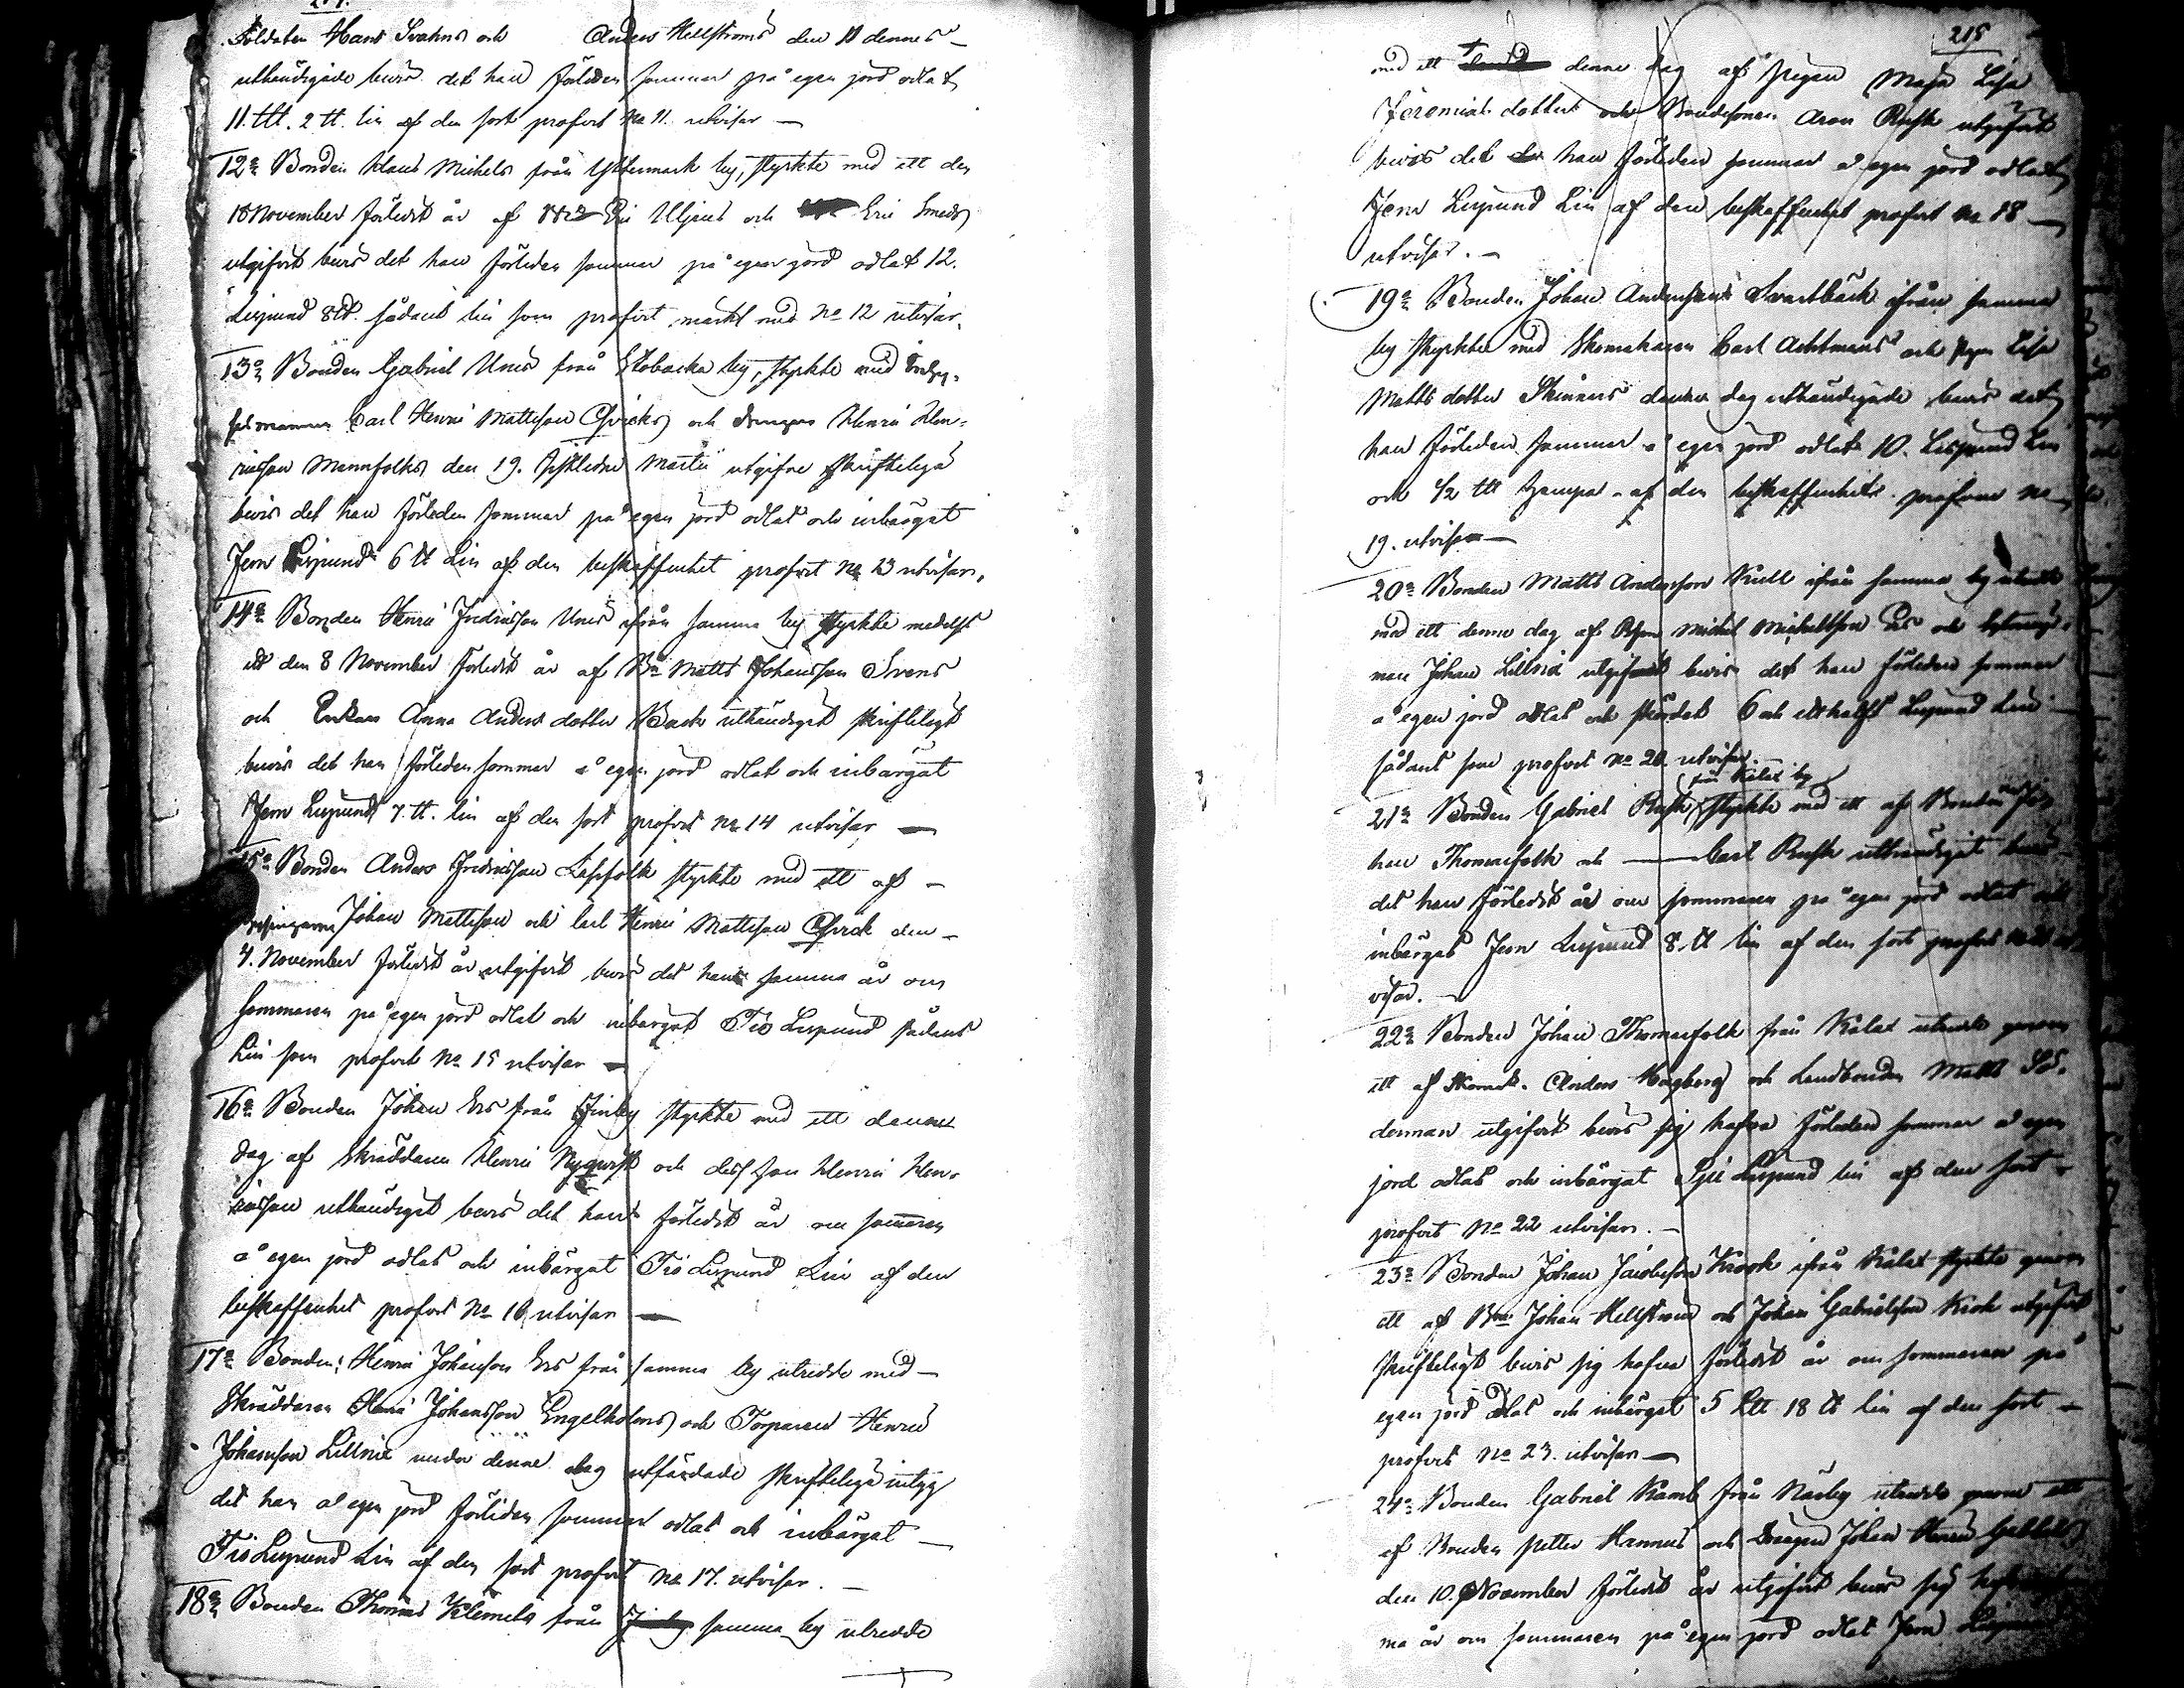 Soldaten Hans Svahns och Anders Hellströms den 11 dennes
uthändigade bevis det han förleden sommar på egen jord odlat
11. Ltt. 2 tt. lin af den sort profvet No 11. utvisar —
12o Bonden Hans Michels från Yttermark by, styrkte med ett den
10 November förledit år af Eric Uljens och Eric Smeds
utgifvit bevis det han förleden sommar på egen jord odlat 12.
Lispund 8 tt. sådant lin som profvet märkt med No 12 utvisar.
13o Bonden Gabriel Unes från Stobacka by, styrkte med
Carl Henric Mattsson Qvicks och drengen Henric Hen-
ricsson Mannfolks den 19. Martii utgifne skriftelige
bevis det han förleden sommar på egen jord odlat och inbärgat
Fem Lispund 6 tt Lin af den beskaffenhet profvet No 13 utvisar.
14o Bonden Henric Fredricsson Unes ifrån samma by styrkte medelst
ett den 8 November förledit år af Bn Matts Johansson Svens
och Enkan Anna Anders dotter Back uthändigat skrifteligt
bevis det han förleden sommar å egen jord odlat och inbärgat
Fem Lispund 7. tt. lin af den sort profvet No 14 utvisar —
15o Bonden Anders Fredricsson Lassfolk styrkte med ett af —
Johan Mattsson och Carl Henric Mattsson Qvick den —
4. November förledit år utgifvit bevis det han samma år om
sommaren på egen jord odlat och inbärgat Tio Lispund sådant
Lin som profvet No 15 utvisar —
16o Bonden Johan Ers från Finby styrkte med ett denne
dag af Skräddaren Henric Nyqvist och dess son Henric Hen-
ricsson uthändigat bevis det han förledit år om sommaren
å egen jord odlat och inbärgat Tio Lispund Lin af den
beskaffenhet profvet No 16 utvisar —
17o Bonden Henric Johansson Ers från samma by utredde med —
Skräddaren Henric Johansson Engelholms och Torparen Henric
Johansson Lillnix under denne dag utfärdade skriftelige intyg
det han å egen jord förleden sommar odlat och inbärgat —
Tio Lispund Lin af den sort profvet No 17. utvisar. —
18o Bonden Thomas Klemets från samma by utredde
215
med ett denne dag af Pigan Maja Lisa
Jeremias dotter och Bondesonen Aron Rusk utgifvit
bevis det han förleden sommar å egen jord odlat
Fem Lispund Lin af den beskaffenhet profvet No 18 —
utvisar. —
19o Bonden Johan Andersson Svartbäck ifrån samma
by styrkte med Skomakaren Carl Achtmans och Pigan Lisa
Matts dotter Skinnars denne dag uthändigade bevis det
han förleden sommar å egen jord odlat 10. Lispund Lin
och 1/2 Ltt hampa af den beskaffenhet profven No
19. utvisar —
20o Bonden Matts Andersson Kull ifrån samma by utredde
med ett denne dag af Michel Michelsson och
man Johan Lillnix utgifvit bevis det han förleden sommar
å egen jord odlat och skördat 6 och ett halft Lispund Lin —
sådant som profvet No 20 utvisar.
från Kalax by
21o Bonden Gabriel Rusk styrkte med ett af Bonden Jo-
han Thomasfolk och — Carl Rusk uthändigat bevis
det han förledit år om sommaren på egen jord odlat och
inbärgat Fem Lispund 8. tt lin af den sort profvet No 21 ut-
visar. —
22o Bonden Johan Thomasfolk från Kalax utredde genom
ett af Anders Högberg och Landbonden Matts Sö-
derman utgifvit bevis sig hafva förleden sommar å egen
jord odlat och inbärgat Sju Lispund lin af den sort
profvet No 22 utvisar. —
23o Bonden Johan Jacobsson Krook ifrån Kalax styrkte genom
ett af Bn Johan Hellström och Johan Gabrielsson Krok utgifvit
skrifteligt bevis sig hafva förledit år om sommaren på
egen jord odlat och inbärgat 5 Ltt 18 tt lin af den sort —
profvet No 23. utvisar —
24o Bonden Gabriel Kamb från Näsby utredde genom ett
af Bonden Petter Hannus och Drengen Johan Henric
den 10. November förledit år utgifvit bevis sig
ma år om sommaren på egen jord odlat Fem Lispund